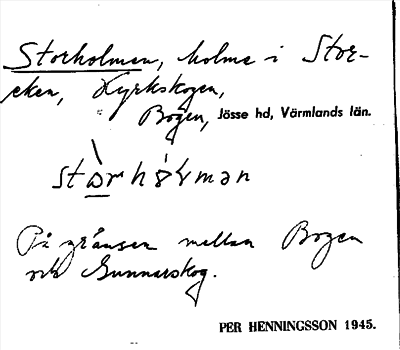 Storholmen, holme i Stor-
cken, Kyrkskogen,
Bogen, Jösse hd, Värmlands län.
På gränsen mellan Bogen
och Gunnarskog.
PER HENNINGSSON 1945.